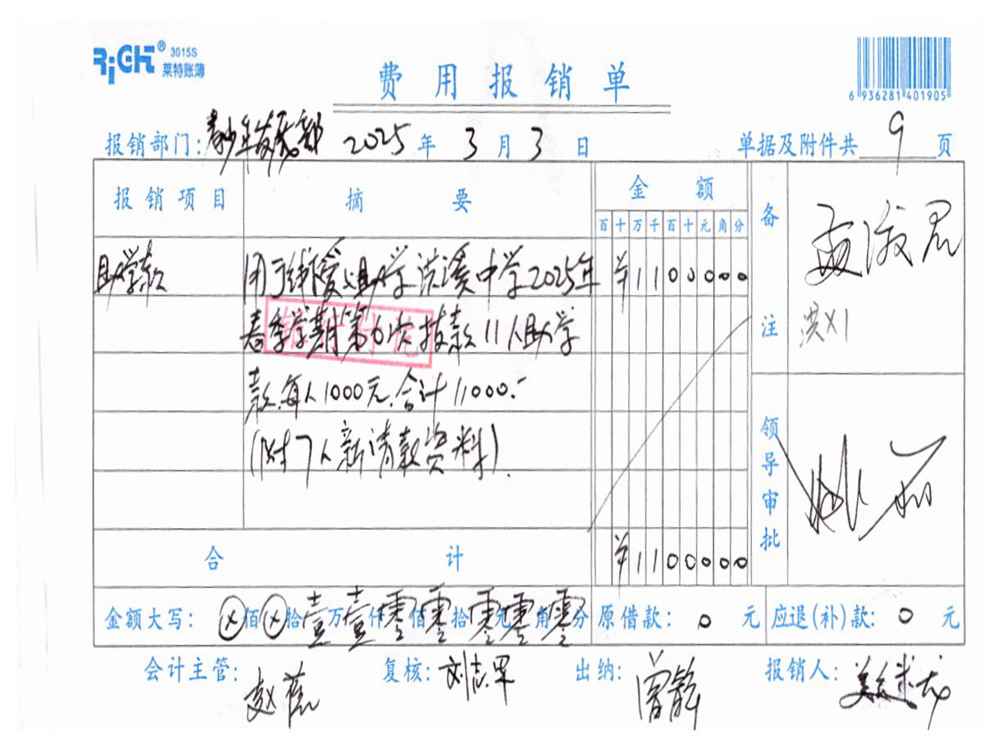 RiCH® 3015S
莱特账簿
费用报销单
6 936281 401905
报销部门: 青少年发展部 2025 年 3 月 3 日 单据及附件共 9 页
报销项目 摘要 金额 备注
百 十 万 千 百 十 元 角 分
助学款 用于 助学 溪中学2025年 ¥1100000
春季学期第 次拨款11人助学
款,每人1000元,合计11000.-
(附7人新请款资料).
领导审批
合计 ¥1100000
金额大写: ⊗佰⊗拾壹万壹仟零佰零拾零元零角零分 原借款: 0 元 应退(补)款: 0 元
会计主管: 赵 复核: 刘志军 出纳: 曾 报销人: